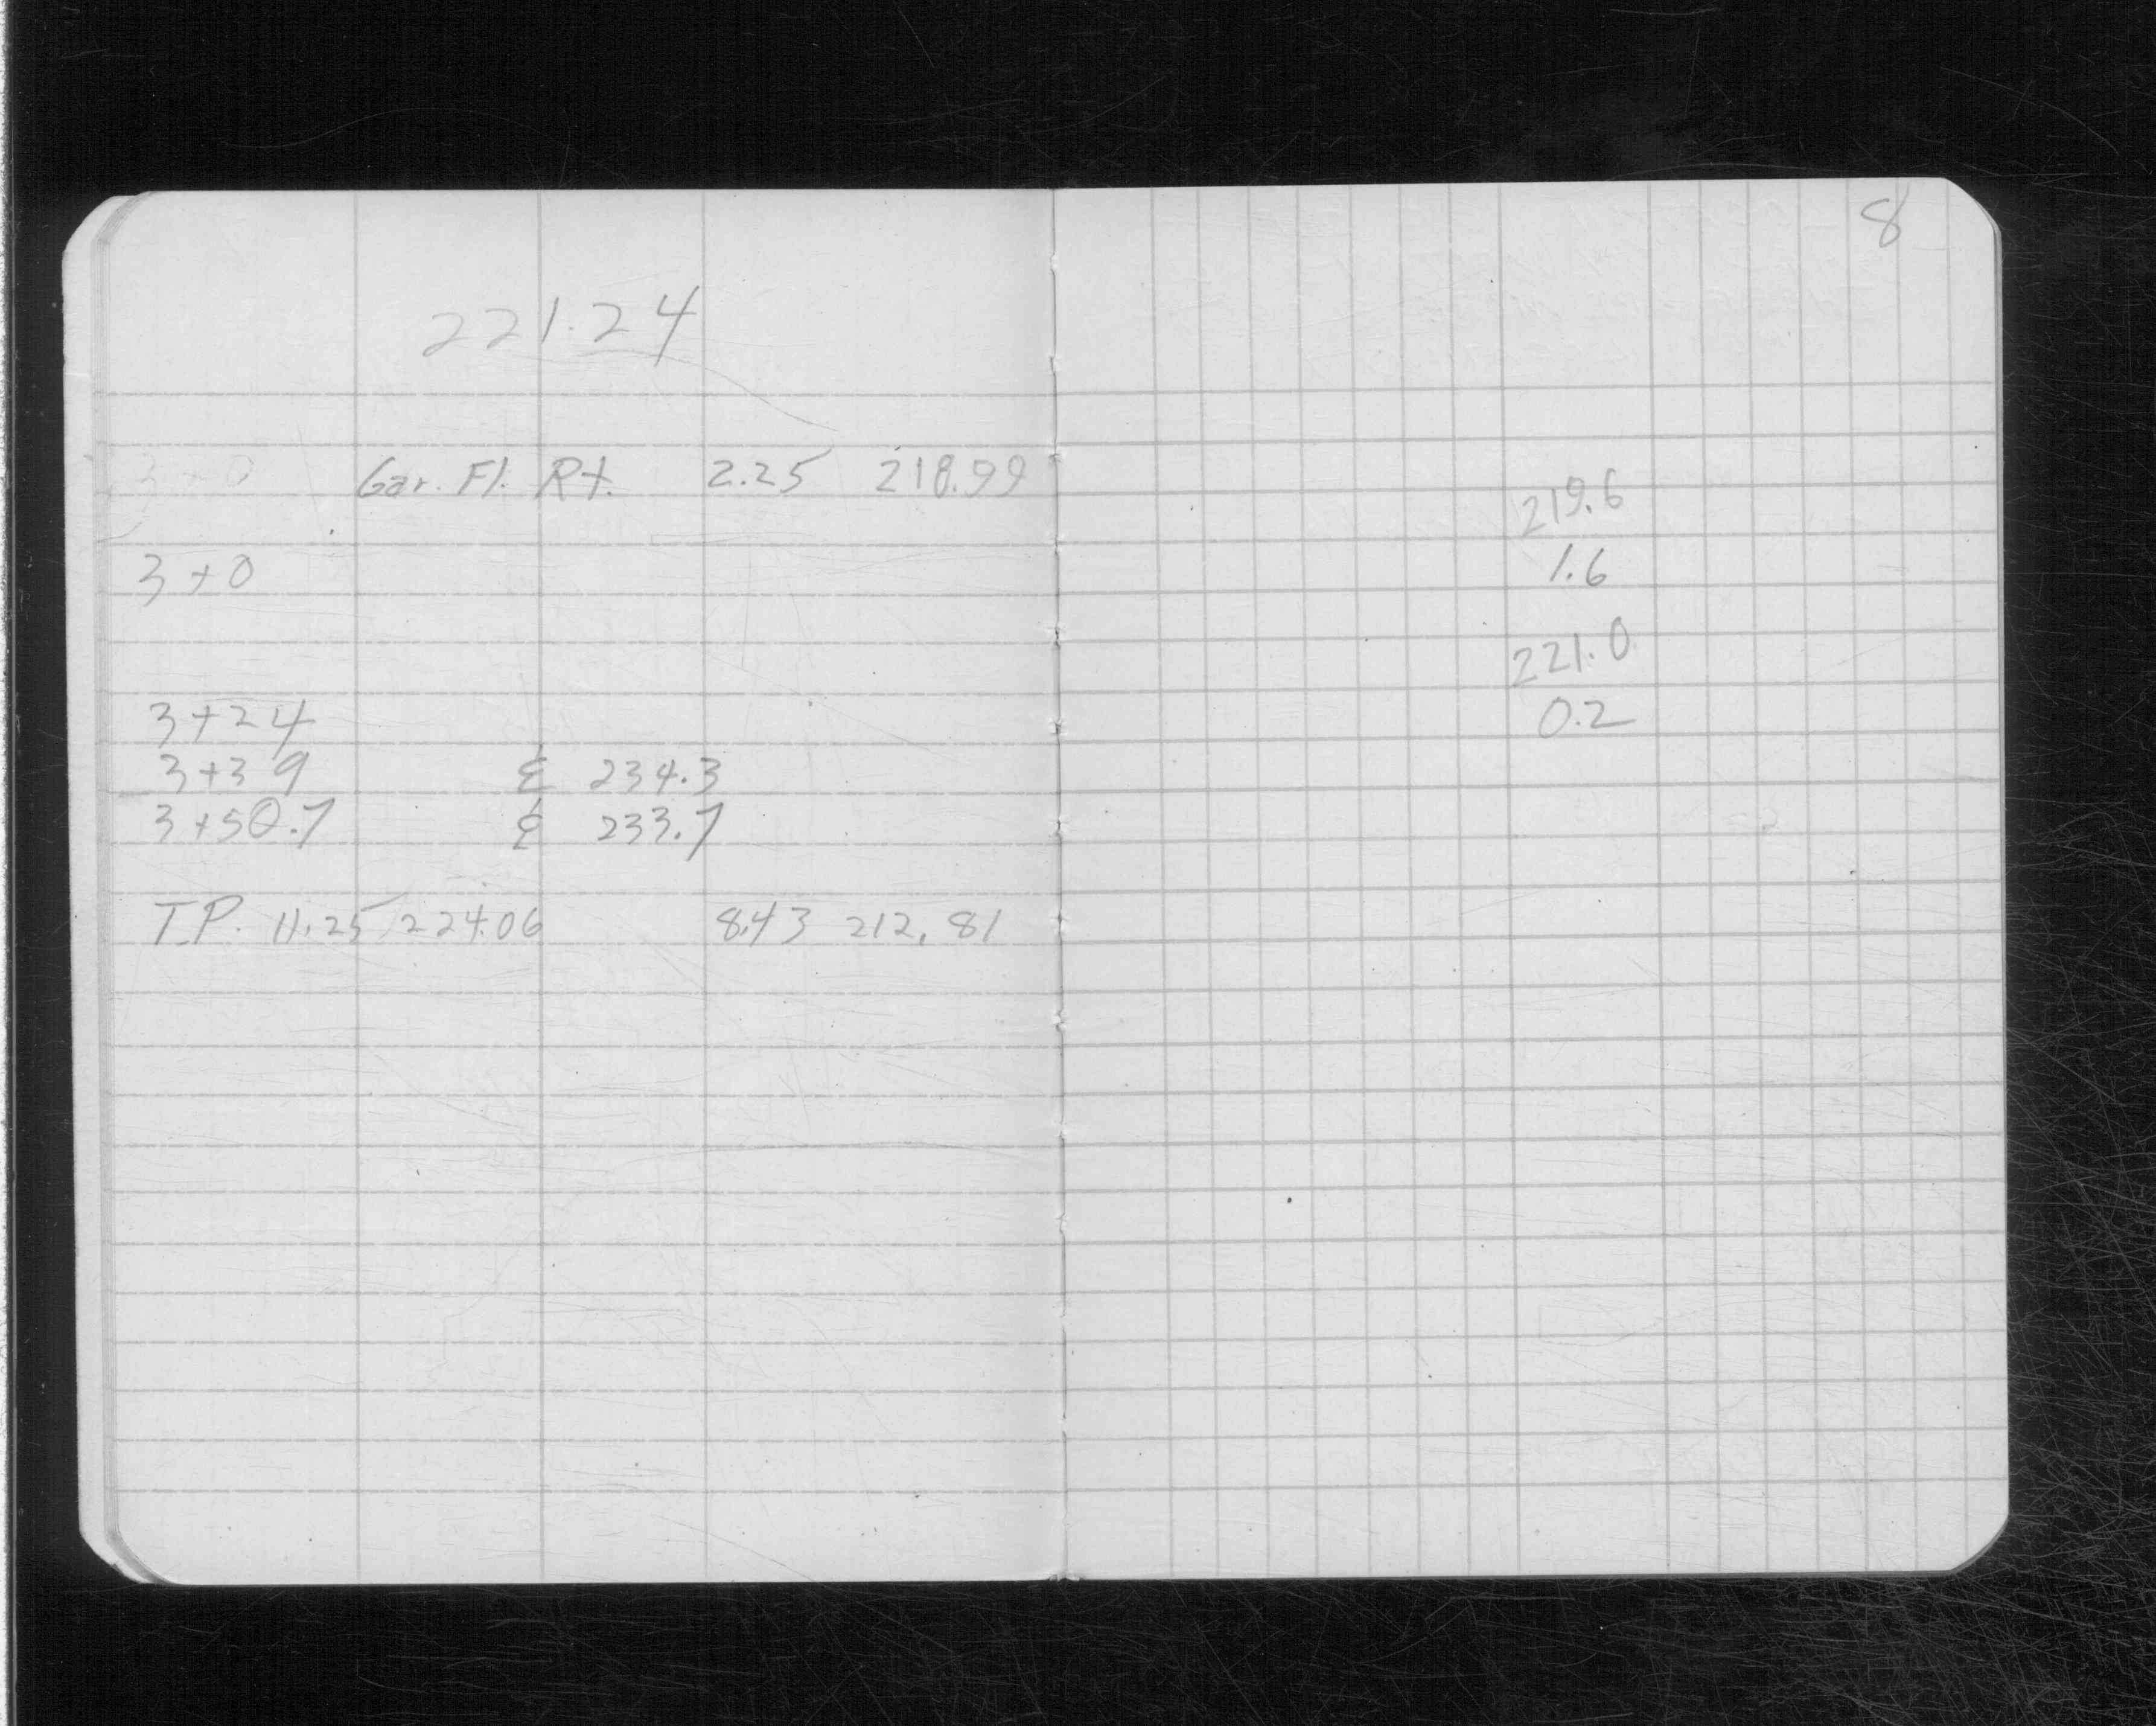 221.24
Gar. Fl. Rt. 2.25 218.99
3+0
3+24
3+39 ℄ 234.3
3+50.7 ℄ 233.7
T.P. 11.25 224.06 8.43 212.81
8
219.6
1.6
221.0
0.2